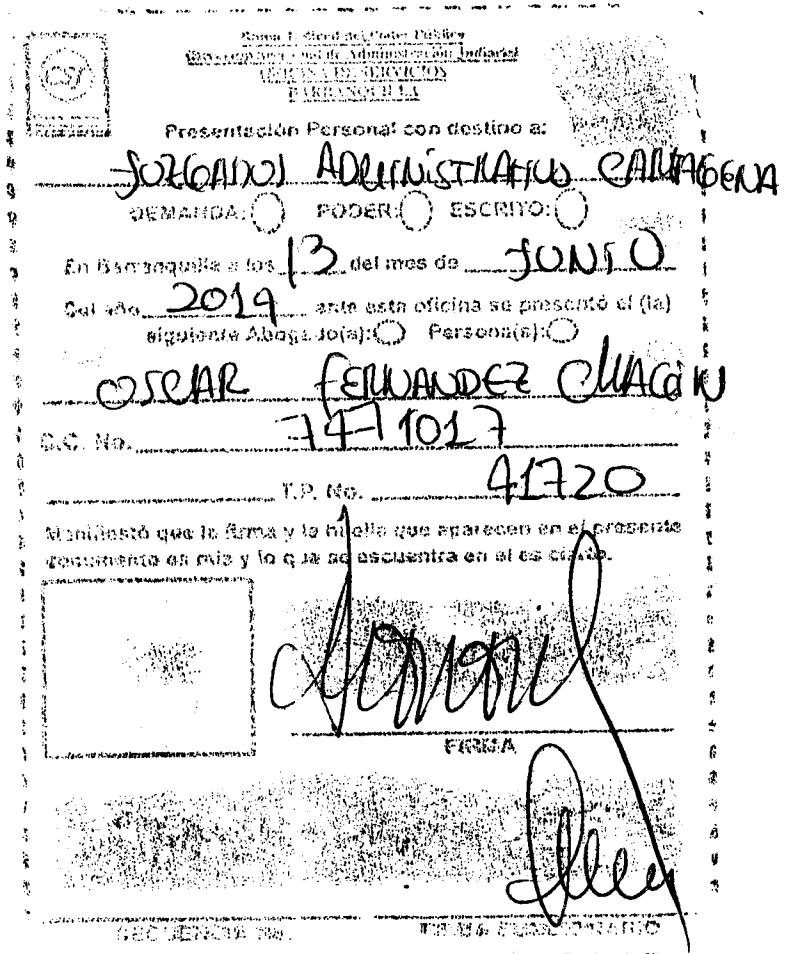 CSJ
Rama Judicial del Poder Público
Dirección Seccional de Administración Judicial
OFICINA DE SERVICIOS
BARRANQUILLA
Presentación Personal con destino a:
JUZGADOS ADMINISTRATIVO CARTAGENA
DEMANDA: PODER: ESCRITO:
En Barranquilla a los 13 del mes de JUNIO
Del año 2019 ante esta oficina se presentó el (la)
siguiente Abogado(a): Persona(s):
OSCAR FERNANDEZ
C.C. No. 7471017
T.P. No. 41720
Manifestó que la firma y la huella que aparecen en el presente
documento es mia y lo que se escuentra en el es cierto.
FIRMA
SECUENCIA No. FIRMA FUNCIONARIO